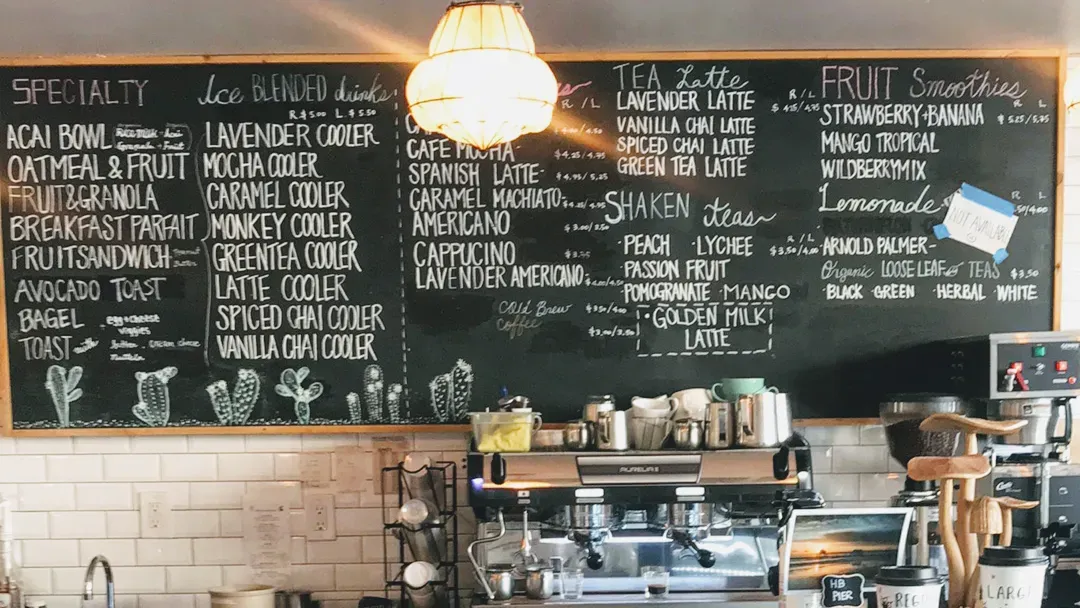 SPECIALTY
ACAI BOWL
OATMEAL & FRUIT
FRUIT & GRANOLA
BREAKFAST PARFAIT
FRUIT SANDWICH
AVOCADO TOAST
BAGEL
egg & cheese
veggies
TOAST with
Ice BLENDED drinks
R $5.00 L $5.50
LAVENDER COOLER
MOCHA COOLER
CARAMEL COOLER
MONKEY COOLER
GREENTEA COOLER
LATTE COOLER
SPICED CHAI COOLER
VANILLA CHAI COOLER
R / L
CAFE MOCHA $4.25/4.75
SPANISH LATTE $4.95/5.25
CARAMEL MACHIATO
AMERICANO
CAPPUCINO
LAVENDER AMERICANO
Cold Brew
Coffee
TEA Latte
R / L
LAVENDER LATTE
VANILLA CHAI LATTE
SPICED CHAI LATTE
GREEN TEA LATTE
SHAKEN teas
R / L
·PEACH ·LYCHEE
PASSION FRUIT
POMOGRANATE ·MANGO
·GOLDEN MILK
LATTE
FRUIT Smoothies
R L
STRAWBERRY+BANANA $5.25/5.75
MANGO TROPICAL
WILDBERRYMIX
Lemonade
R L
NOT AVAILABLE
ARNOLD PALMER-
Organic LOOSE LEAF TEAS $3.50
·BLACK ·GREEN ·HERBAL ·WHITE
AURELIA II
HB
PIER
REG
LARGE